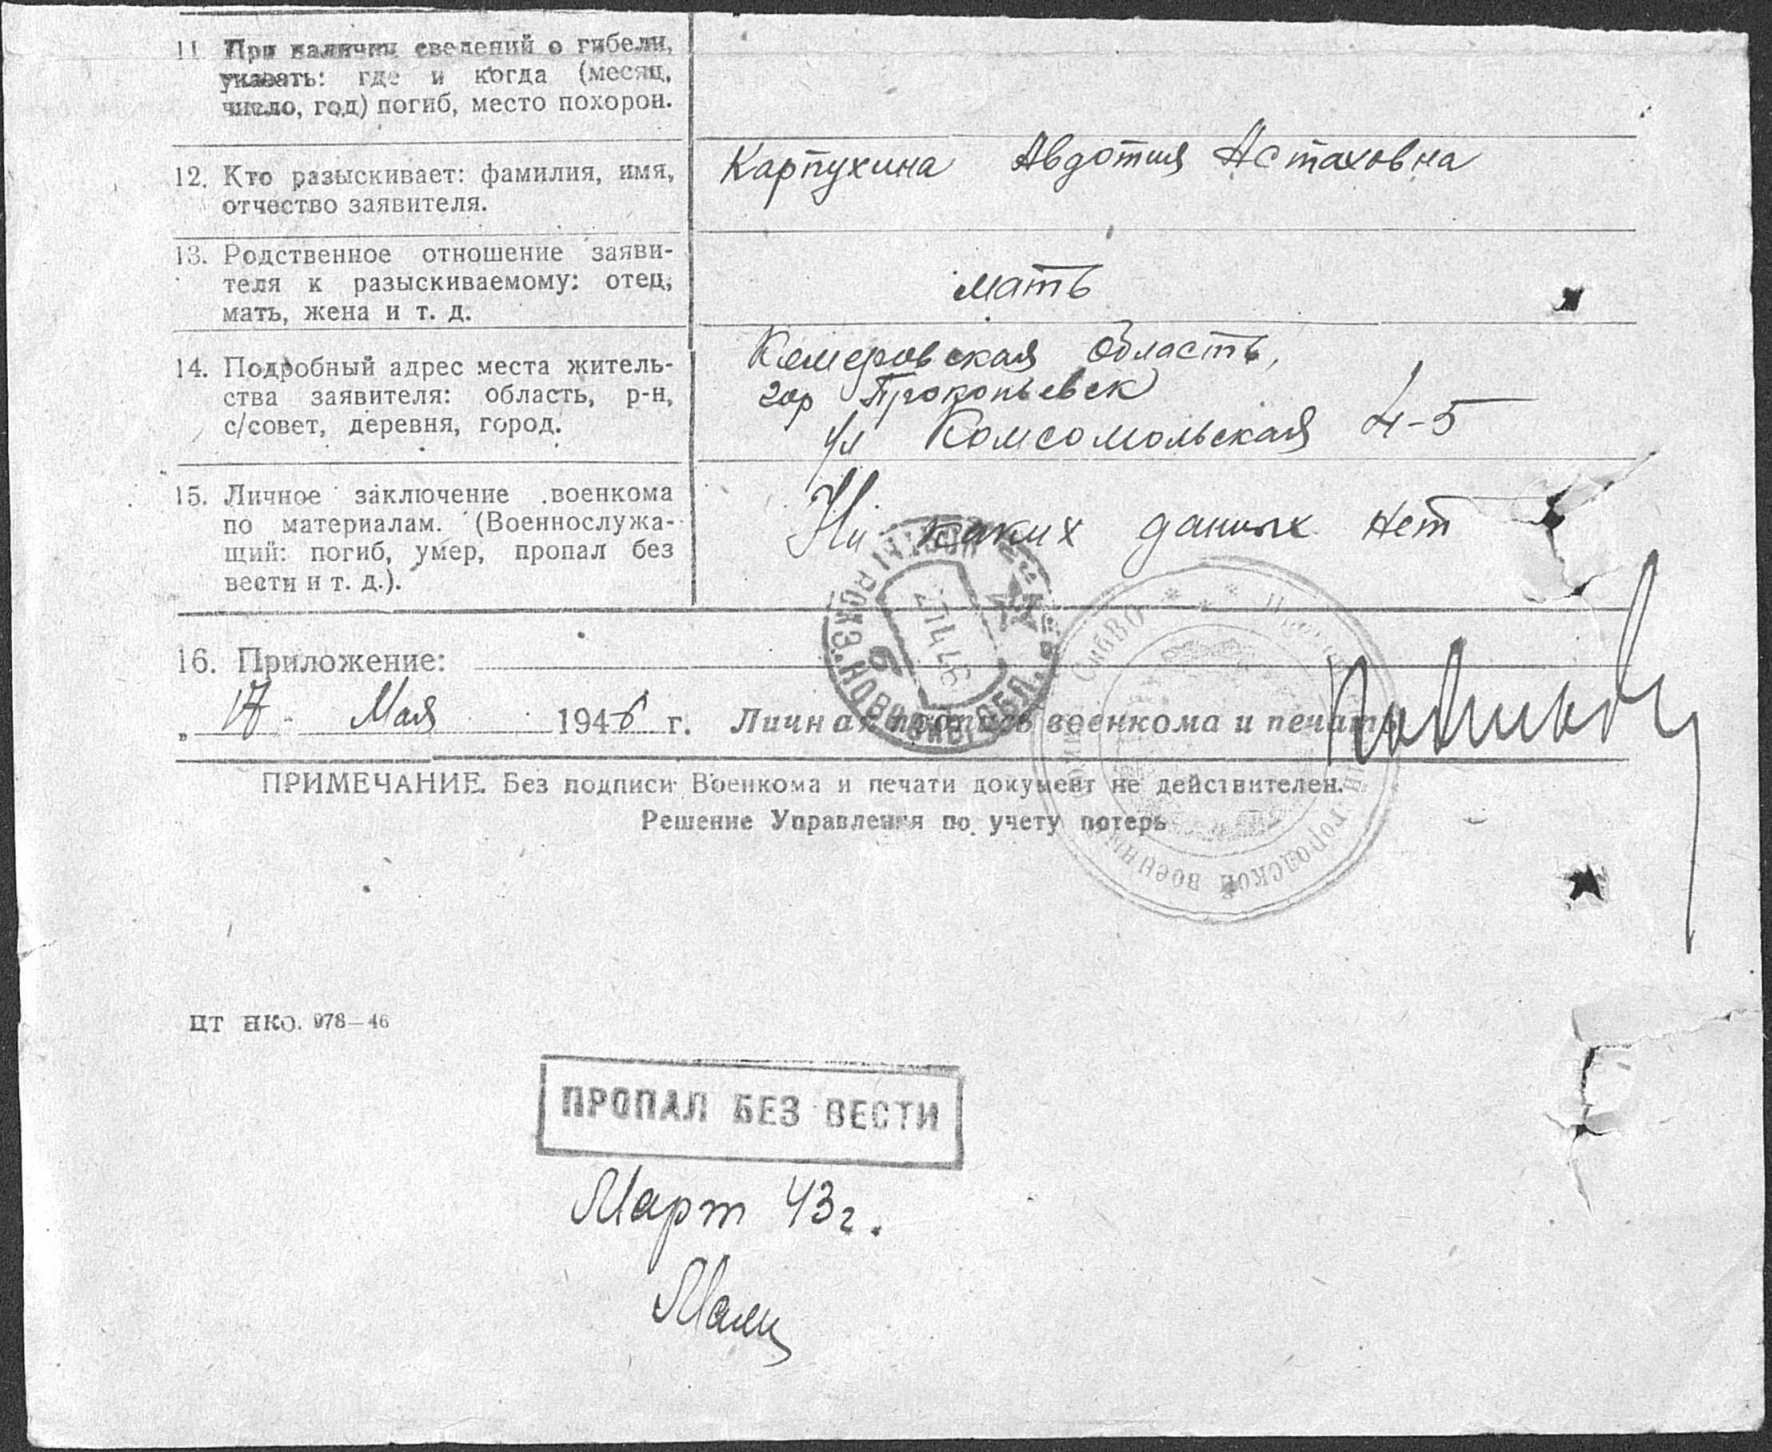 11. При наличии сведений о гибели,
указать: где и когда (месяц,
число, год) погиб, место похорон.
12. Кто разыскивает: фамилия, имя,
отчество заявителя.
Карпухина Авдотия Астаховна
13. Родственное отношение заяви-
теля к разыскиваемому: отец,
мать, жена и т. д.
мать
14. Подробный адрес места житель-
ства заявителя: область, р-н,
с/совет, деревня, город.
Кемеровская область,
гор Прокопьевск
ул Комсомольская 4-5
15. Личное заключение военкома
по материалам. (Военнослужа-
щий: погиб, умер, пропал без
вести и т. д.).
Ни каких данных нет
16. Приложение:
„17 Мая 1946 г. Личная подпись военкома и печать
ПРИМЕЧАНИЕ. Без подписи Военкома и печати документ не действителен.
Решение Управления по учету потерь
ЦТ НКО. 978—46
ПРОПАЛ БЕЗ ВЕСТИ
Март 43г.